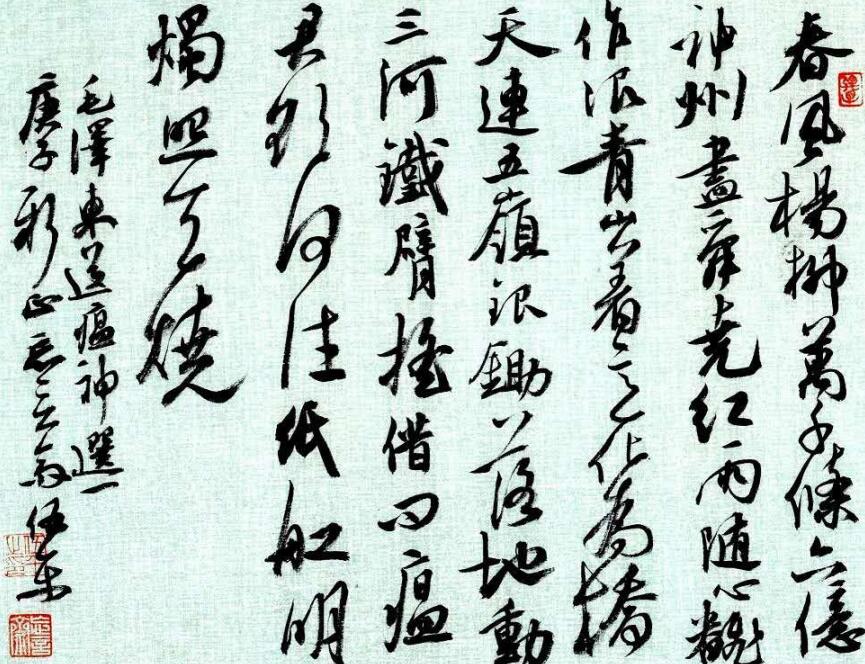 春風楊柳萬千條六億
神州盡舜堯红雨随心翻
作浪青山着意化為橋
天連五嶺銀鋤落地動
三河鐵臂摇借问瘟
君欲何往纸船明
燭照天燒
毛澤東送瘟神選一
庚子新正